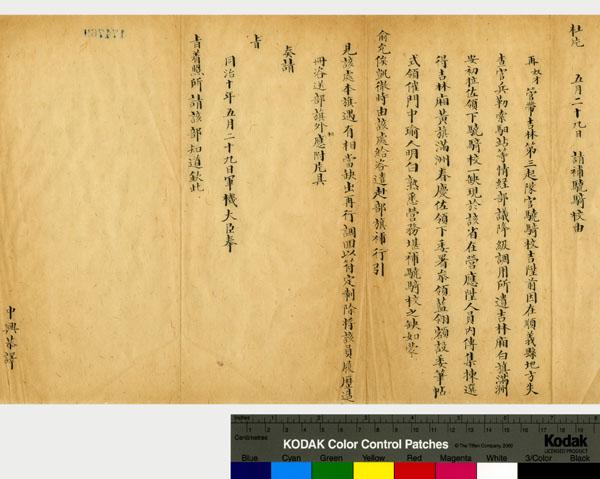 杜片　五月二十九日　請補驍騎校由
再奴才管帶吉林第三起隊官驍騎校吉陞前因在順義縣地方失
查官兵勒索馹站等情經部議降級調用所遺吉林廂白旗滿洲
安初拉佐領下驍騎校一缺現於該省在營應陞人員內傳集揀選
得吉林廂黃旗滿洲春慶佐領下委署參領藍翎額設委筆帖
式領催門申瑜人明白熟悉營務堪補驍騎校之缺如蒙
俞允俟凱徹時由該處給咨遣赴部旗補行引
見該處本旗遇有相當缺出再行調回以符定制除將該員履歷造
冊咨送部旗外應附片具
奏請
旨
同治十年五月二十九日軍機大臣奉
旨着照所請該部知道欽此
中興恭譯
174769
KODAK Color Control Patches
© The Tiffen Company, 2000
Kodak
LICENSED PRODUCT
Inches
Centimetres
Blue
Cyan
Green
Yellow
Red
Magenta
White
3/Color
Black